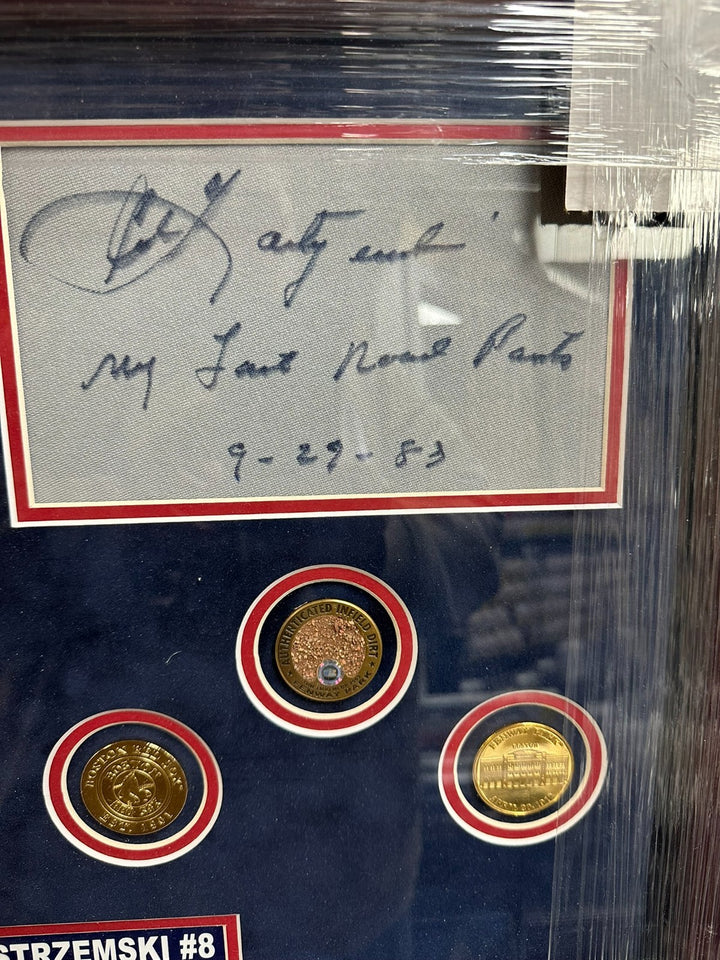 Carl Yastrzemski
My Last Road Pants
9-29-83
AUTHENTICATED INFIELD DIRT
FENWAY PARK
BOSTON RED SOX
BOSTON
RED SOX
EST. 1901
FENWAY PARK
BOSTON
STRZEMSKI #8